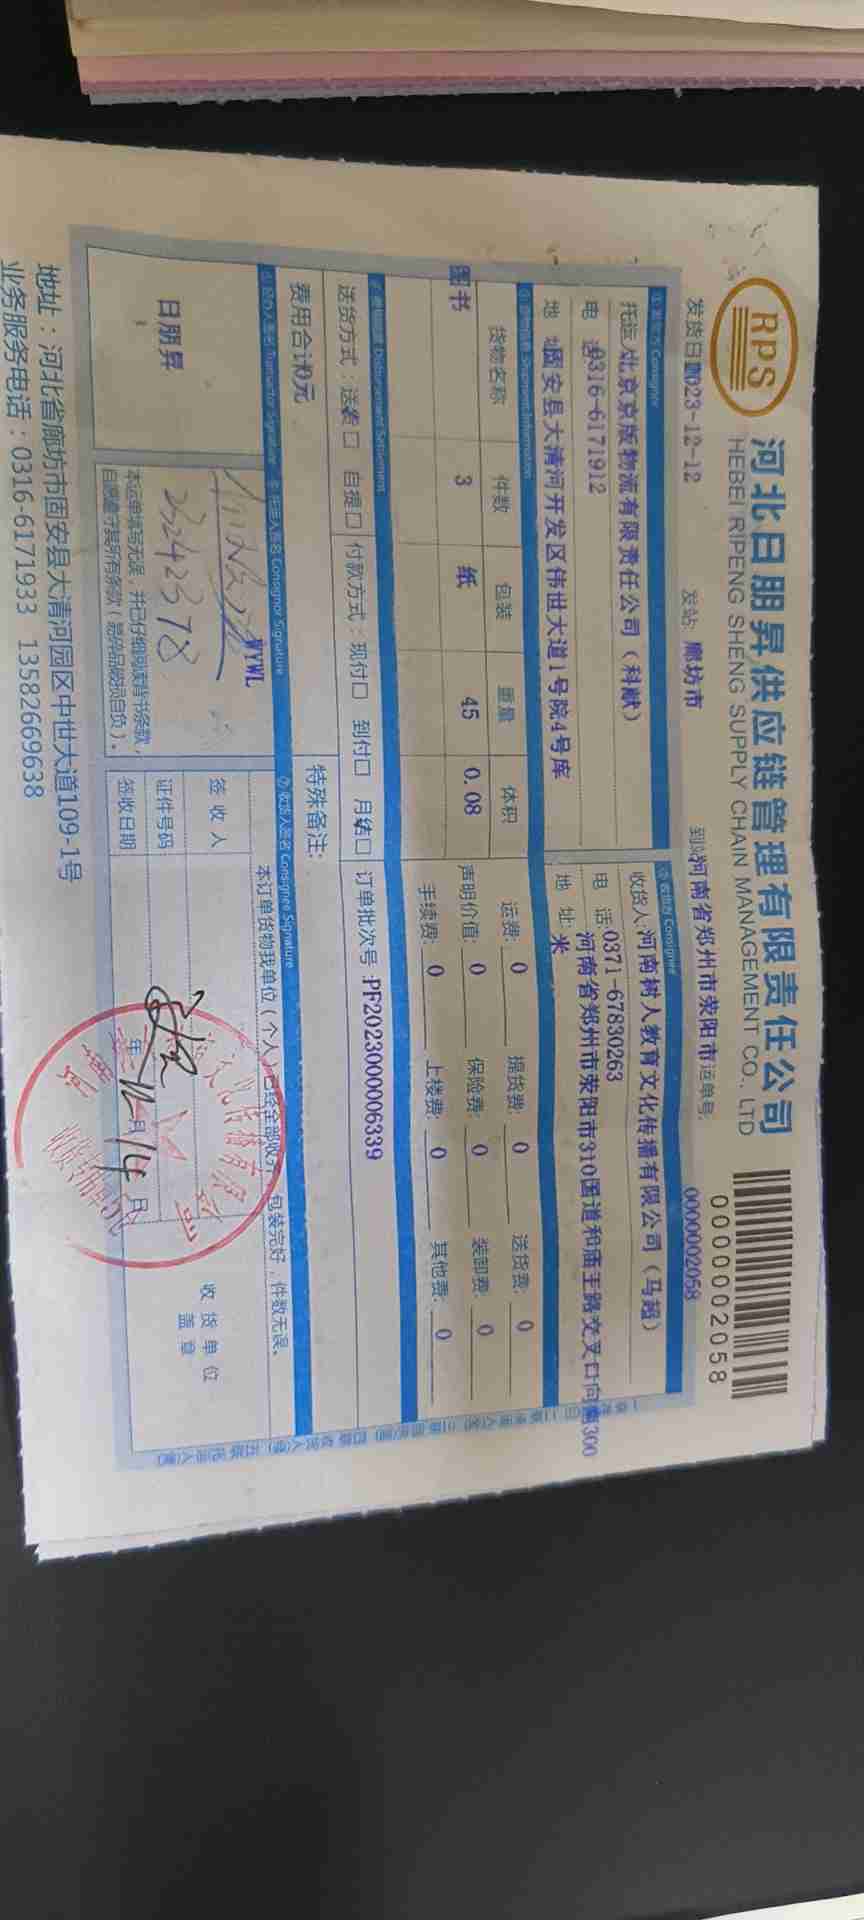 RPS
河北日朋昇供应链管理有限责任公司
HEBEI RIPENG SHENG SUPPLY CHAIN MANAGEMENT CO., LTD
0000002058
发货日期2023-12-12 发站: 廊坊市 到站河南省郑州市荥阳市 运单号: 0000002058
① 发货方 Consignor ② 收货方 Consignee
托运人北京京版物流有限责任公司(科献) 收货人:河南树人教育文化传播有限公司(马超)
电 话0316-6171912 电 话:0371-67830263
地 址固安县大清河开发区伟世大道1号院4号库 地 址:河南省郑州市荥阳市310国道和庙王路交叉口向南300米
③ 货物信息 Shipment Information
货物名称 件数 包装 重量 体积 运费: 0 提货费: 0 送货费: 0
图书 3 纸 45 0.08 声明价值: 0 保险费: 0 装卸费: 0
手续费: 0 上楼费: 0 其他费: 0
Disbursement Settlement
送货方式:送货□ 自提□ 付款方式:现付□ 到付□ 月结□ 订单批次号:PF2023000006339
费用合计0元 特殊备注:
⑤ 经办人签名 Transactor Signature ⑥ 托运人签名 Consignor Signature ⑦ 收货人签名 Consignee Signature
日朋昇
WYWL
2242378
本运单填写无误,并已仔细阅读背书条款,
自愿遵守其所有条款(易碎品破损自负)。
本订单货物我单位(个人)已经全部收齐,包装完好,件数无误。
签收人
证件号码
签收日期 年 12月14日
收货单位
盖章
文化传播有限公司
地址:河北省廊坊市固安县大清河园区中世大道109-1号
业务服务电话:0316-6171933 13582669638